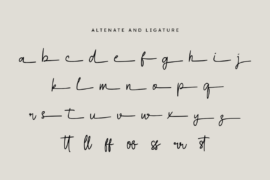 ALTENATE AND LIGATURE
a b c d e f g h i j
k l m n o p q
r s t u v w x y z
tt ll ff oo ss rr st